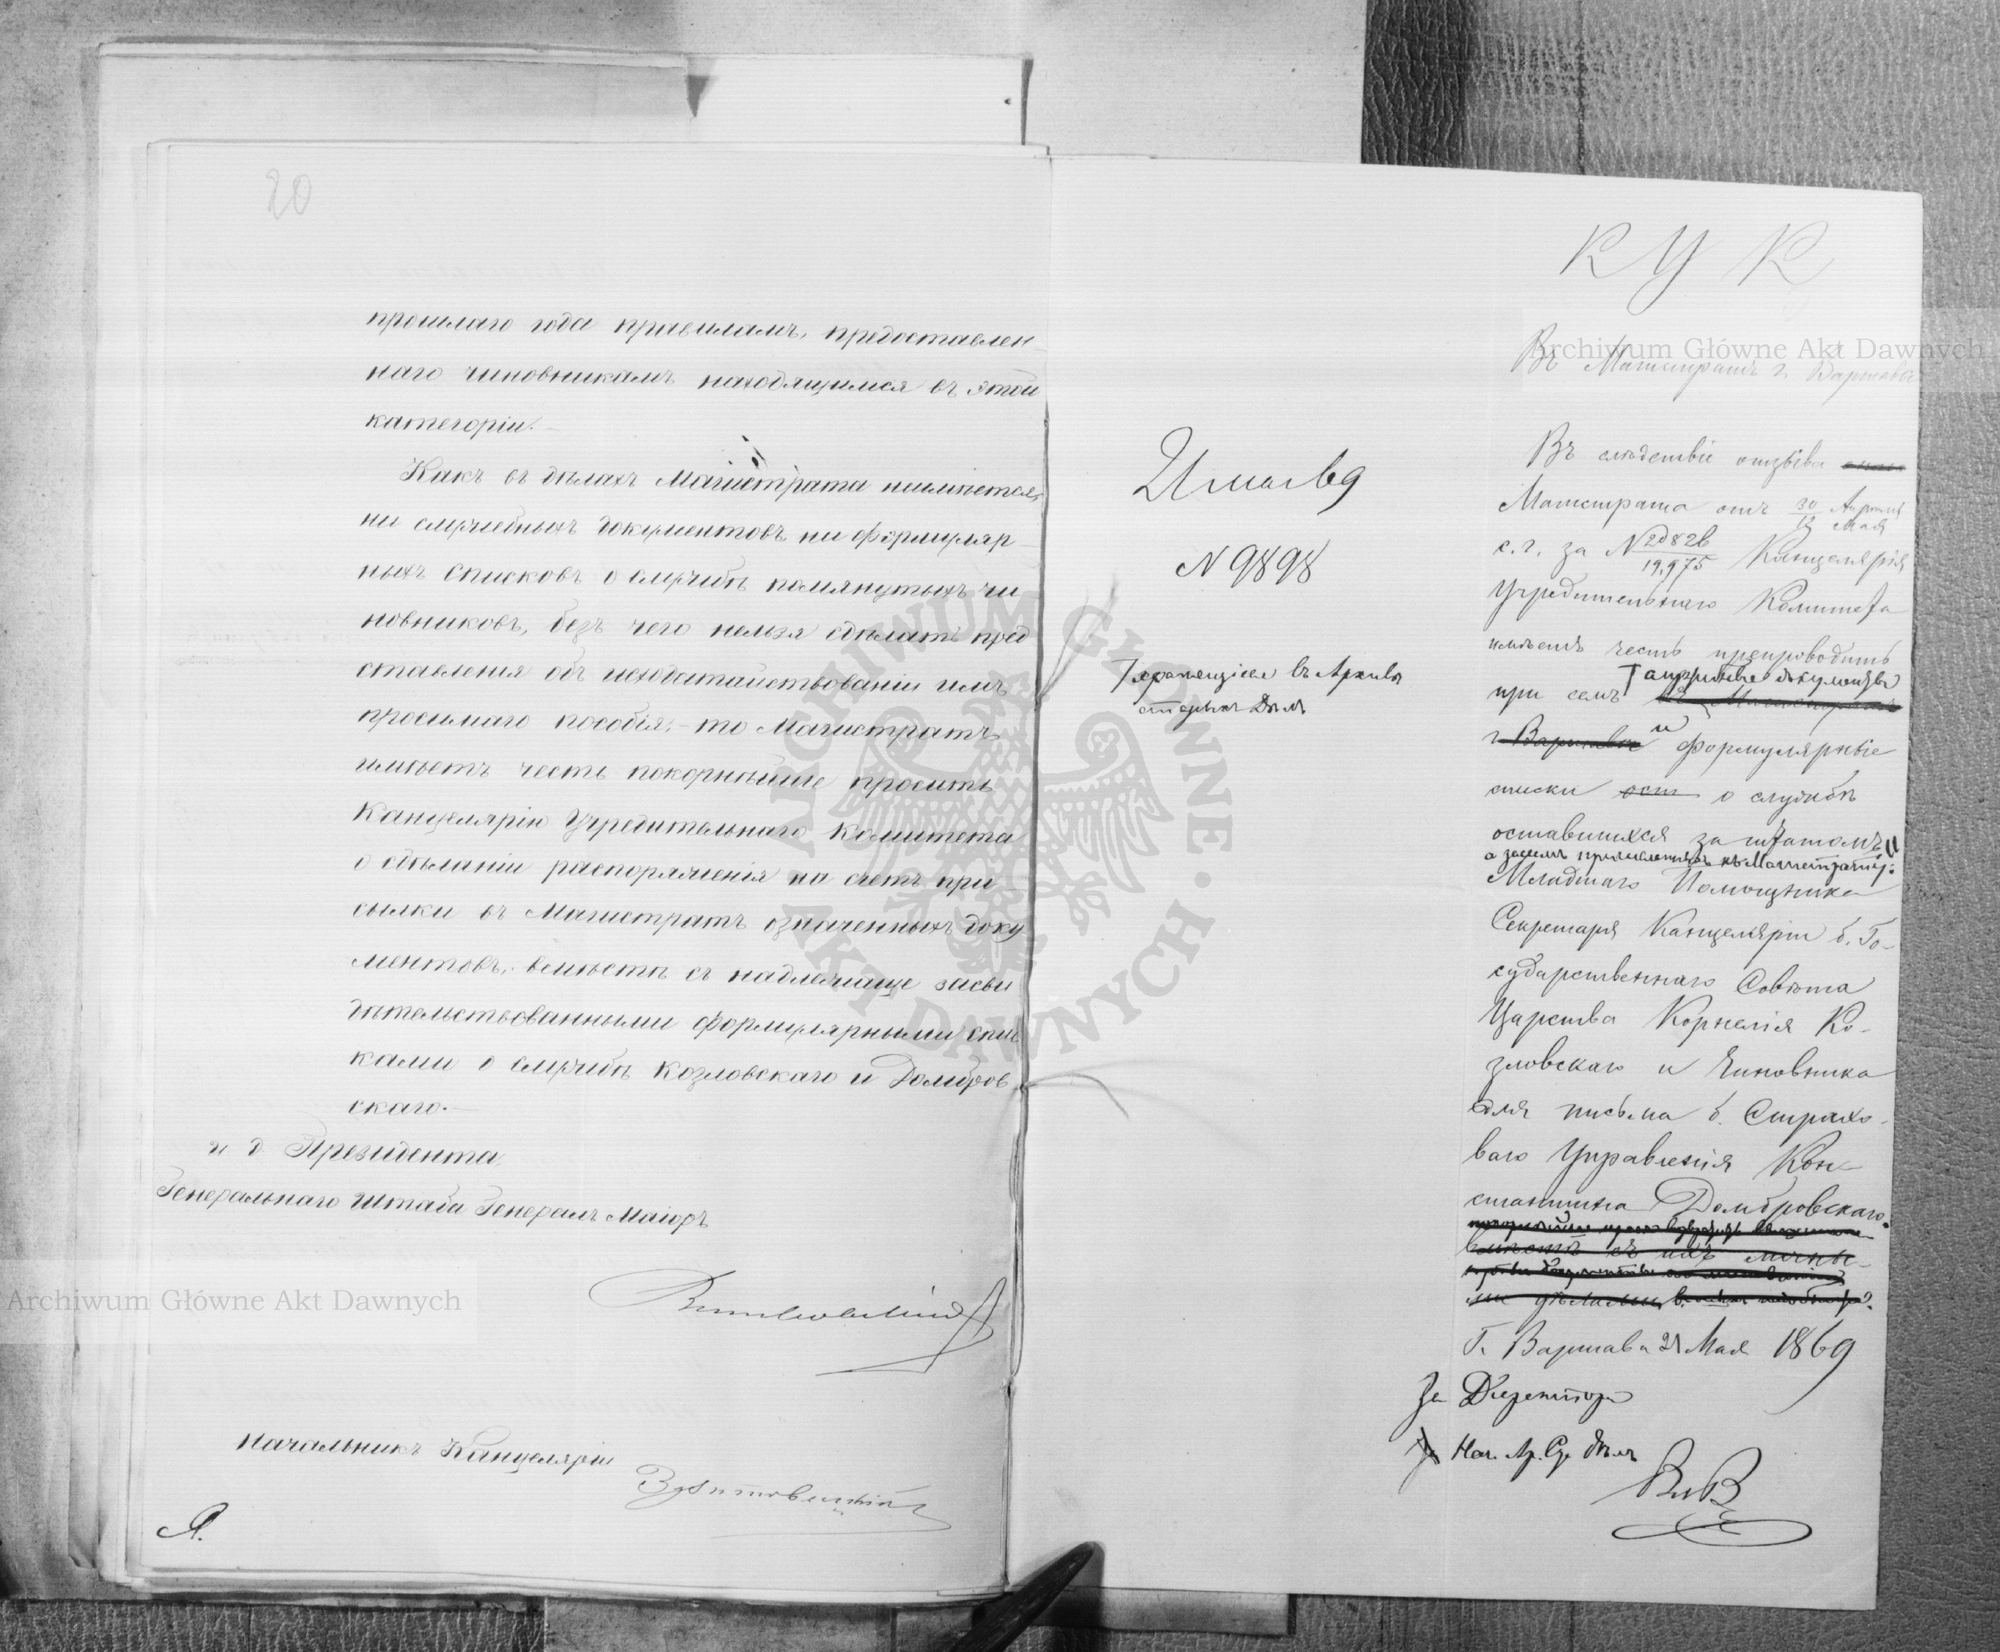 20
прошлаго года правиламъ, предоставлен-
наго чиновникамъ находящимся въ этой
категоріи.
Какъ въ дѣлахъ Магистрата неимѣется,
ни служебныхъ документовъ ни формуляр-
ныхъ списковъ о службѣ помянутыхъ чи
новниковъ, безъ чего нельзя сдѣлать пред
ставленія объ исходатайствованіи имъ
просимаго пособія, – то Магистратъ
имѣетъ честь покорнѣйше просить
Канцелярію Учредительнаго Комитета
о сдѣланіи распоряженія на счетъ при-
сылки въ Магистратъ означенныхъ доку
ментовъ, вмѣстѣ съ надлежаще засви
дѣтельствованными формулярными спис
ками о службѣ Козловскаго и Домбров
скаго.–
и д Президента,
Генеральнаго Штаба Генералъ Маіоръ
Начальникъ Канцеляріи
А.
К У К
Въ Магистратъ г. Варшавы
21 Мая 69
N 9898
въ Архивѣ
старыхъ Дѣлъ
Въ слѣдствіе отзыва
Магистрата отъ 30/12 Апрѣля/Мая
с. г. за N 20826/19,975 Канцелярія
Учредительнаго Комитета
имѣетъ честь препроводить
при семъ документы
г. Варшавы и формулярные
списки о службѣ
оставшихся за штатомъ
а затѣмъ причисленныхъ къ Магистрату:
Младшаго Помощника
Секретаря Канцеляріи б. Го-
сударственнаго Совѣта
Царства Корнелія Ко-
зловскаго и Чиновника
для письма б. Страхо-
ваго Управленія Кон-
стантина Домбровскаго.
вмѣстѣ съ ихъ личны-
ми дѣлами
Г. Варшава 21 Мая 1869
За Директора
Нач. Ар. Ст. дѣлъ
Archiwum Główne Akt Dawnych
Archiwum Główne Akt Dawnych
ARCHIWUM GŁÓWNE · AKT DAWNYCH ·